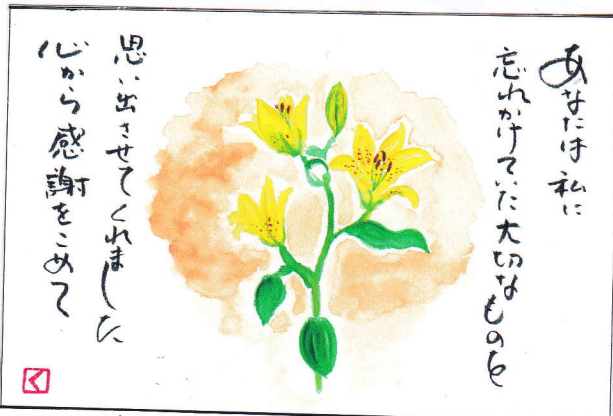 あなたは私に
忘れかけていた大切なものを
思い出させてくれました
心から感謝をこめて
く